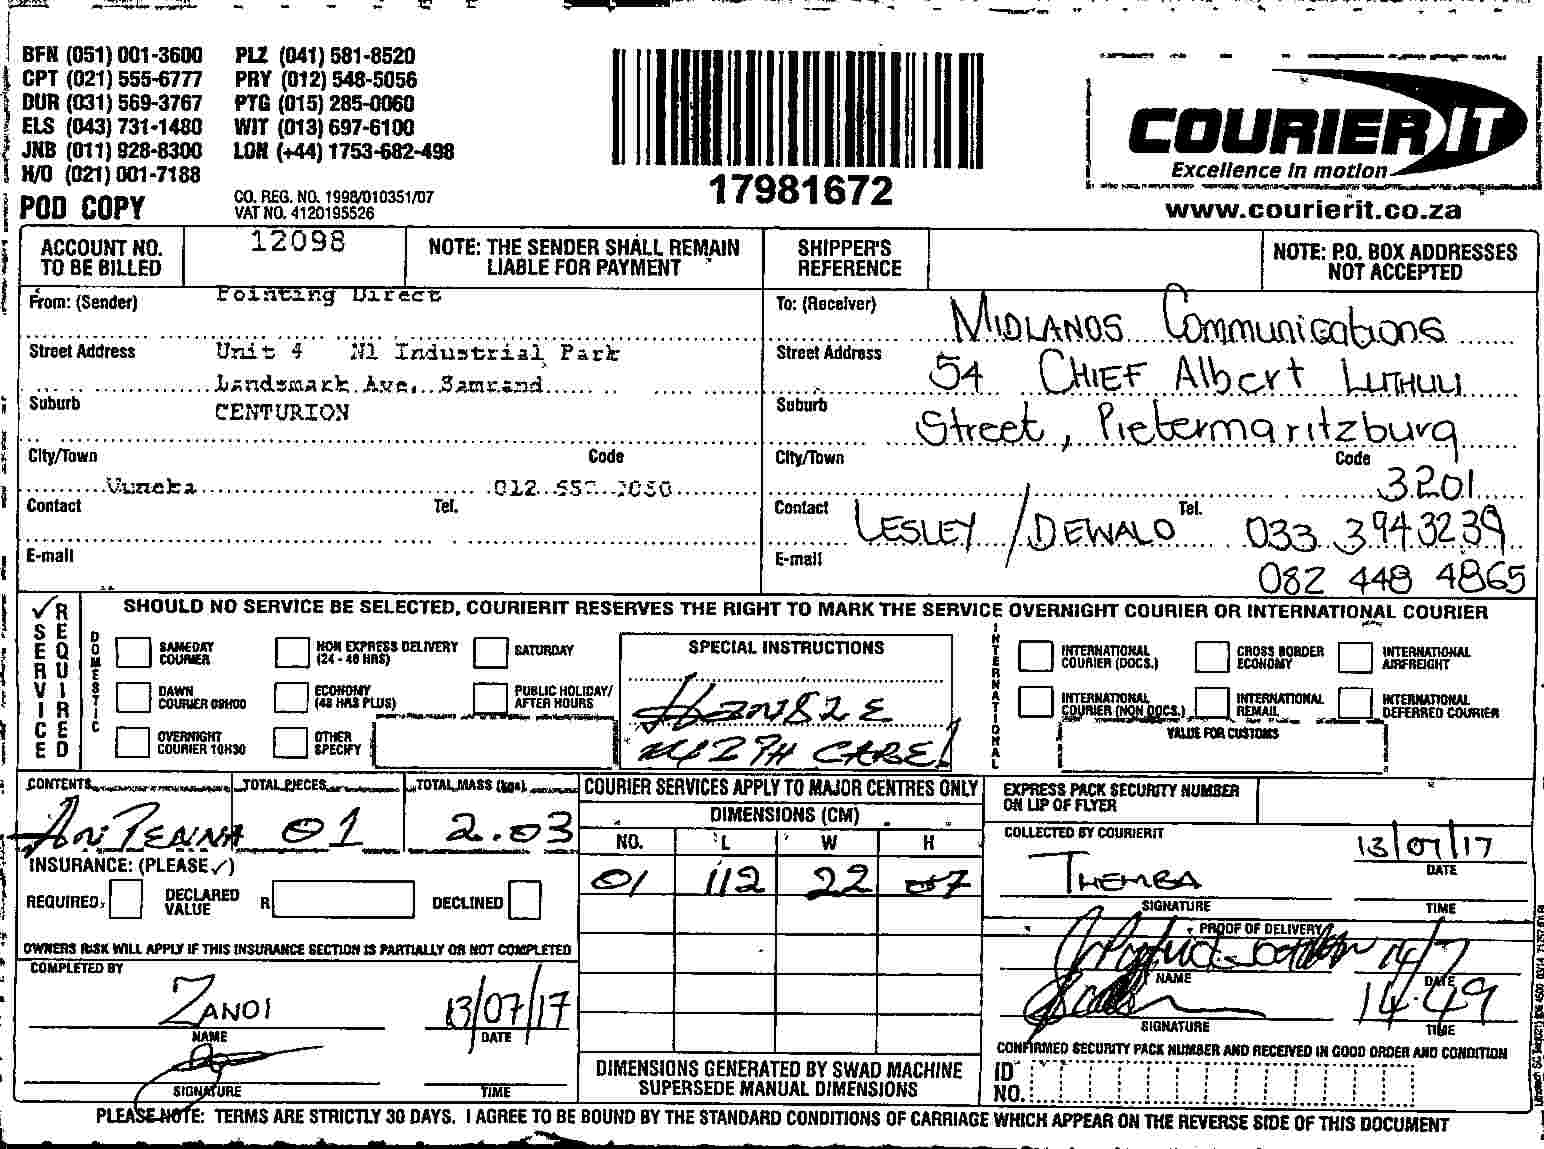 BFN (051) 001-3600 PLZ (041) 581-8520
CPT (021) 555-6777 PRY (012) 548-5056
DUR (031) 569-3767 PTG (015) 285-0060
ELS (043) 731-1480 WIT (013) 697-6100
JNB (011) 928-8300 LON (+44) 1753-682-498
H/O (021) 001-7188
POD COPY
CO. REG. NO. 1998/010351/07
VAT NO. 4120195526
17981672
COURIER IT
Excellence in motion
www.courierit.co.za
ACCOUNT NO. TO BE BILLED
12098
NOTE: THE SENDER SHALL REMAIN LIABLE FOR PAYMENT
SHIPPER'S REFERENCE
NOTE: P.O. BOX ADDRESSES NOT ACCEPTED
From: (Sender) Pointing Direct
Street Address Unit 4 N1 Industrial Park
Landsmark Ave, Samrand
Suburb CENTURION
City/Town Code
Contact Tel. 012
E-mail
To: (Receiver) MIDLANDS Communications
Street Address 54 CHIEF Albert LUTHULI
Suburb Street, Pietermaritzburg
City/Town Code 3201
Contact LESLEY / DEWALD Tel. 033 394 3239
E-mail 082 448 4865
✓ SERVICE REQUIRED
SHOULD NO SERVICE BE SELECTED, COURIERIT RESERVES THE RIGHT TO MARK THE SERVICE OVERNIGHT COURIER OR INTERNATIONAL COURIER
DOMESTIC
SAMEDAY COURIER
NON EXPRESS DELIVERY (24 - 48 HRS)
SATURDAY
DAWN COURIER 09H00
ECONOMY (48 HRS PLUS)
PUBLIC HOLIDAY/ AFTER HOURS
OVERNIGHT COURIER 10H30
OTHER SPECIFY
SPECIAL INSTRUCTIONS
HANDLE
WITH CARE!
INTERNATIONAL
INTERNATIONAL COURIER (DOCS.)
CROSS BORDER ECONOMY
INTERNATIONAL AIRFREIGHT
INTERNATIONAL COURIER (NON DOCS.)
INTERNATIONAL REMAIL
INTERNATIONAL DEFERRED COURIER
VALUE FOR CUSTOMS
CONTENTS TOTAL PIECES TOTAL MASS (kgs)
ANTENNA 01 2.03
INSURANCE: (PLEASE ✓)
REQUIRED DECLARED VALUE R DECLINED
OWNERS RISK WILL APPLY IF THIS INSURANCE SECTION IS PARTIALLY OR NOT COMPLETED
COMPLETED BY
ZANDI 13/07/17
NAME DATE
SIGNATURE TIME
COURIER SERVICES APPLY TO MAJOR CENTRES ONLY
DIMENSIONS (CM)
NO. L W H
01 112 22 07
DIMENSIONS GENERATED BY SWAD MACHINE SUPERSEDE MANUAL DIMENSIONS
EXPRESS PACK SECURITY NUMBER ON LIP OF FLYER
COLLECTED BY COURIERIT
THEMBA 13/07/17
DATE
SIGNATURE TIME
PROOF OF DELIVERY
14/7
NAME DATE
14.49
SIGNATURE TIME
CONFIRMED SECURITY PACK NUMBER AND RECEIVED IN GOOD ORDER AND CONDITION
ID NO.
PLEASE NOTE: TERMS ARE STRICTLY 30 DAYS. I AGREE TO BE BOUND BY THE STANDARD CONDITIONS OF CARRIAGE WHICH APPEAR ON THE REVERSE SIDE OF THIS DOCUMENT